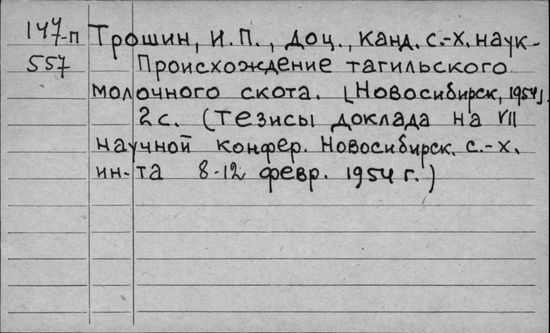 147-п Трошин, И.П., доц., канд. с.-х. наук-
557 Происхождение тагильского
молочного скота. [Новосибирск, 1954].
2с. (Тезисы доклада на VII
научной конфер. Новосибирск. с.-х.
ин-та 8-12 февр. 1954 г.)